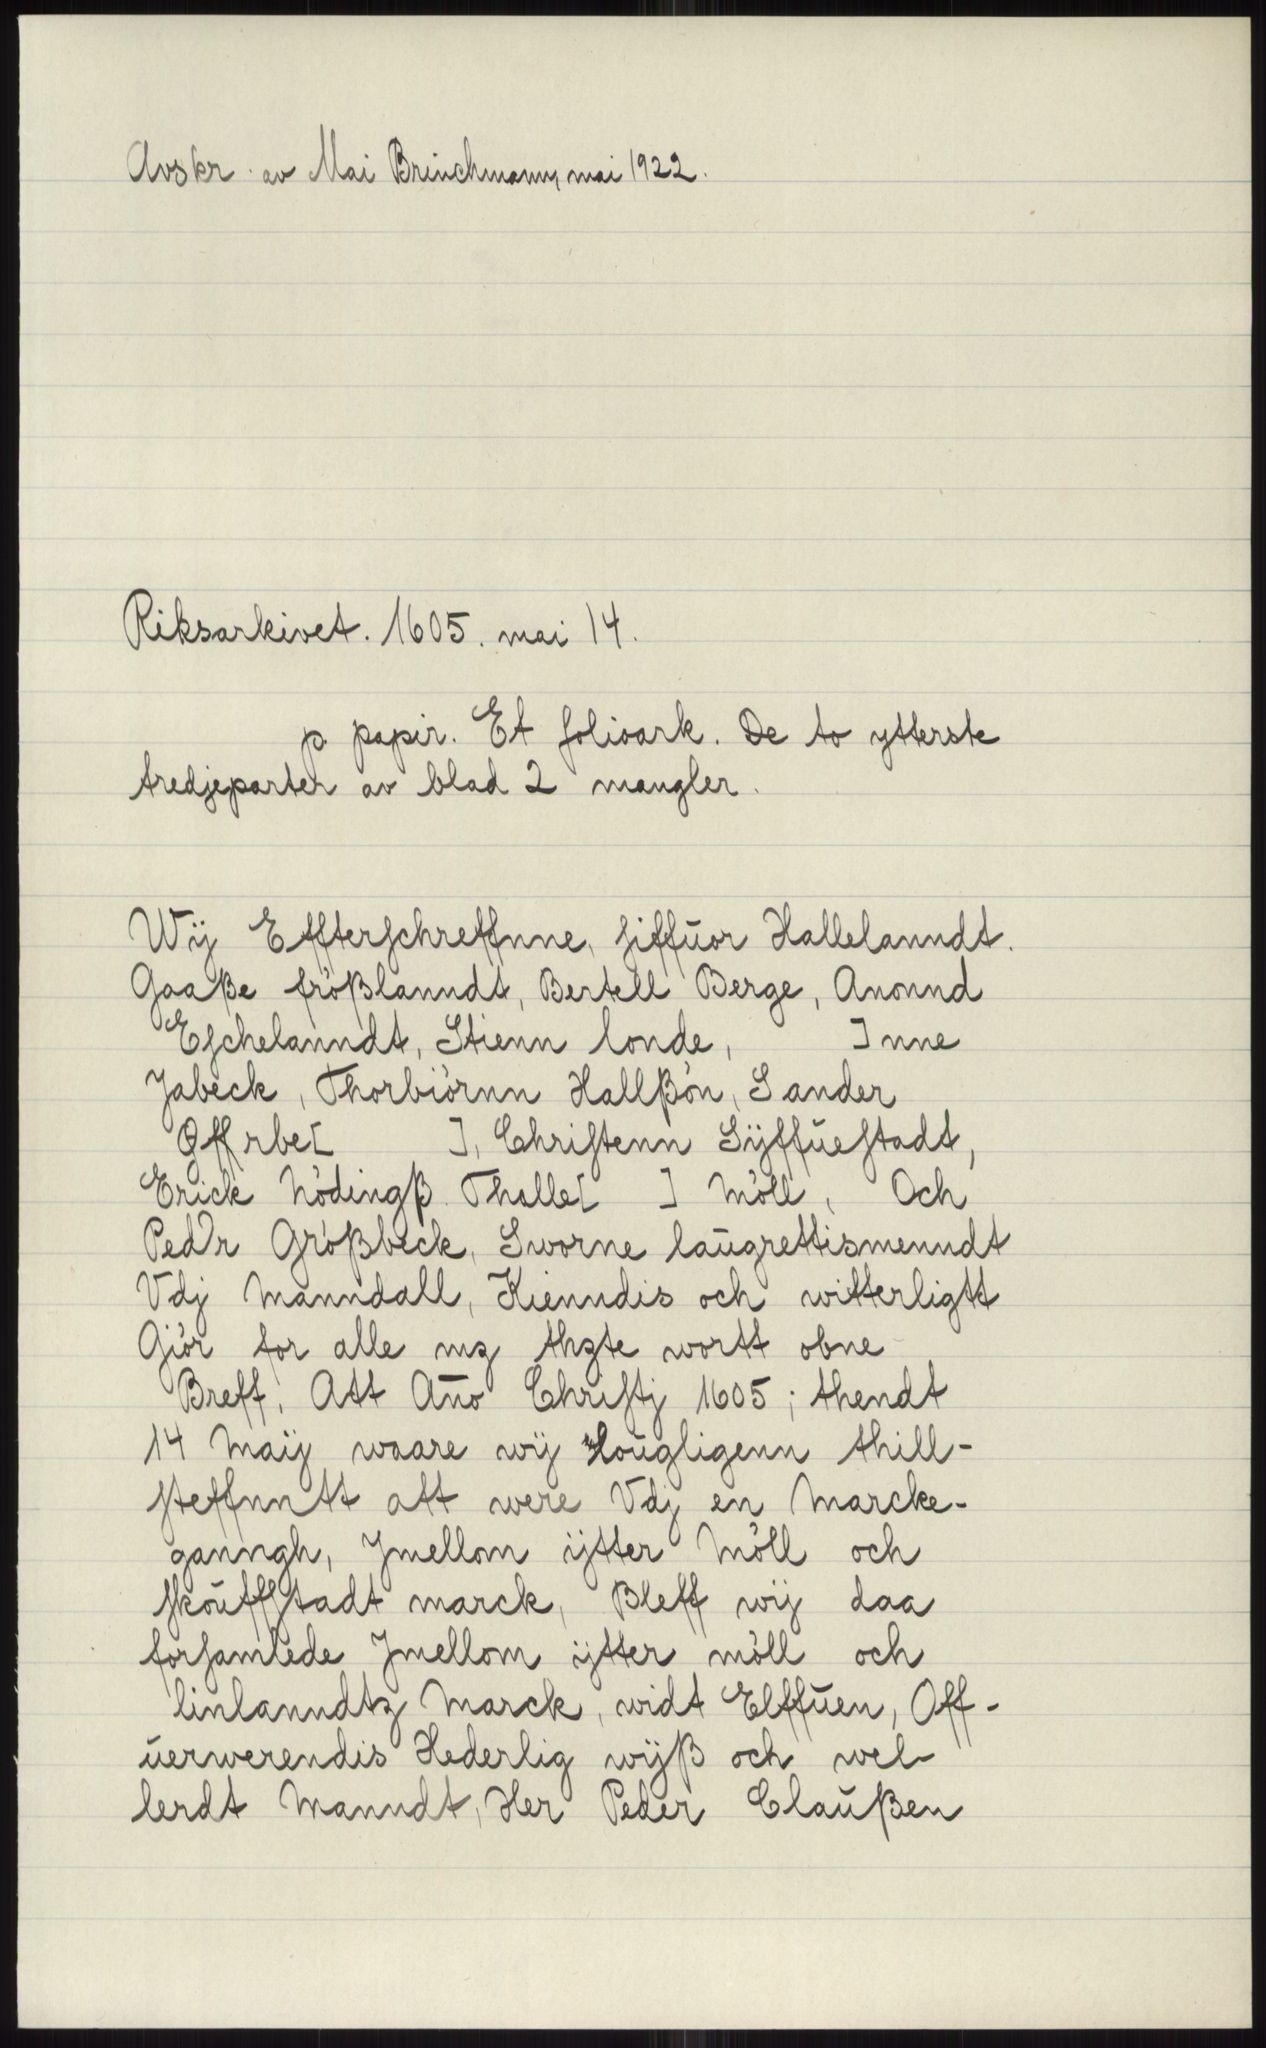 Avskr. av Mai Brinchmann, mai 1922.
Riksarkivet. 1605. mai 14.
p. papir. Et folioark. De to ytterste
tredjeparter av blad 2 mangler.
Wij Effterschreffnne, siffuor Hallelanndt.
Gaaße frößlanndt, Bertell Berge, Anonnd
Eschelanndt, Stienn londe, ]nne
Jabeck, Thorbiörnn Hallßön, Sander
Offrbe[ ], Christenn Sÿffuestadt,
Erick Nödingß. Thalle[ ] Möll, Och
Pedr Größbeck, Sworne laugrettismenndt
Vdj Manndall, Kienndis och witterligtt
Giör for alle mz thzte wortt obne
Breff, Att Año Christj 1605; thendt
14 Maij waare wij Lougligenn thill-
steffnntt att were Vdj en Marcke-
ganngh, Jmellom ÿtter Möll och
skouffstadt marck, Bleff wij daa
forsamlede Jmellom ÿtter möll och
linlanndtz Marck, widt Elffuen, Off-
uerwerendis Hederlig wÿß och wel-
lerdt Manndt, Her Peder Claußen